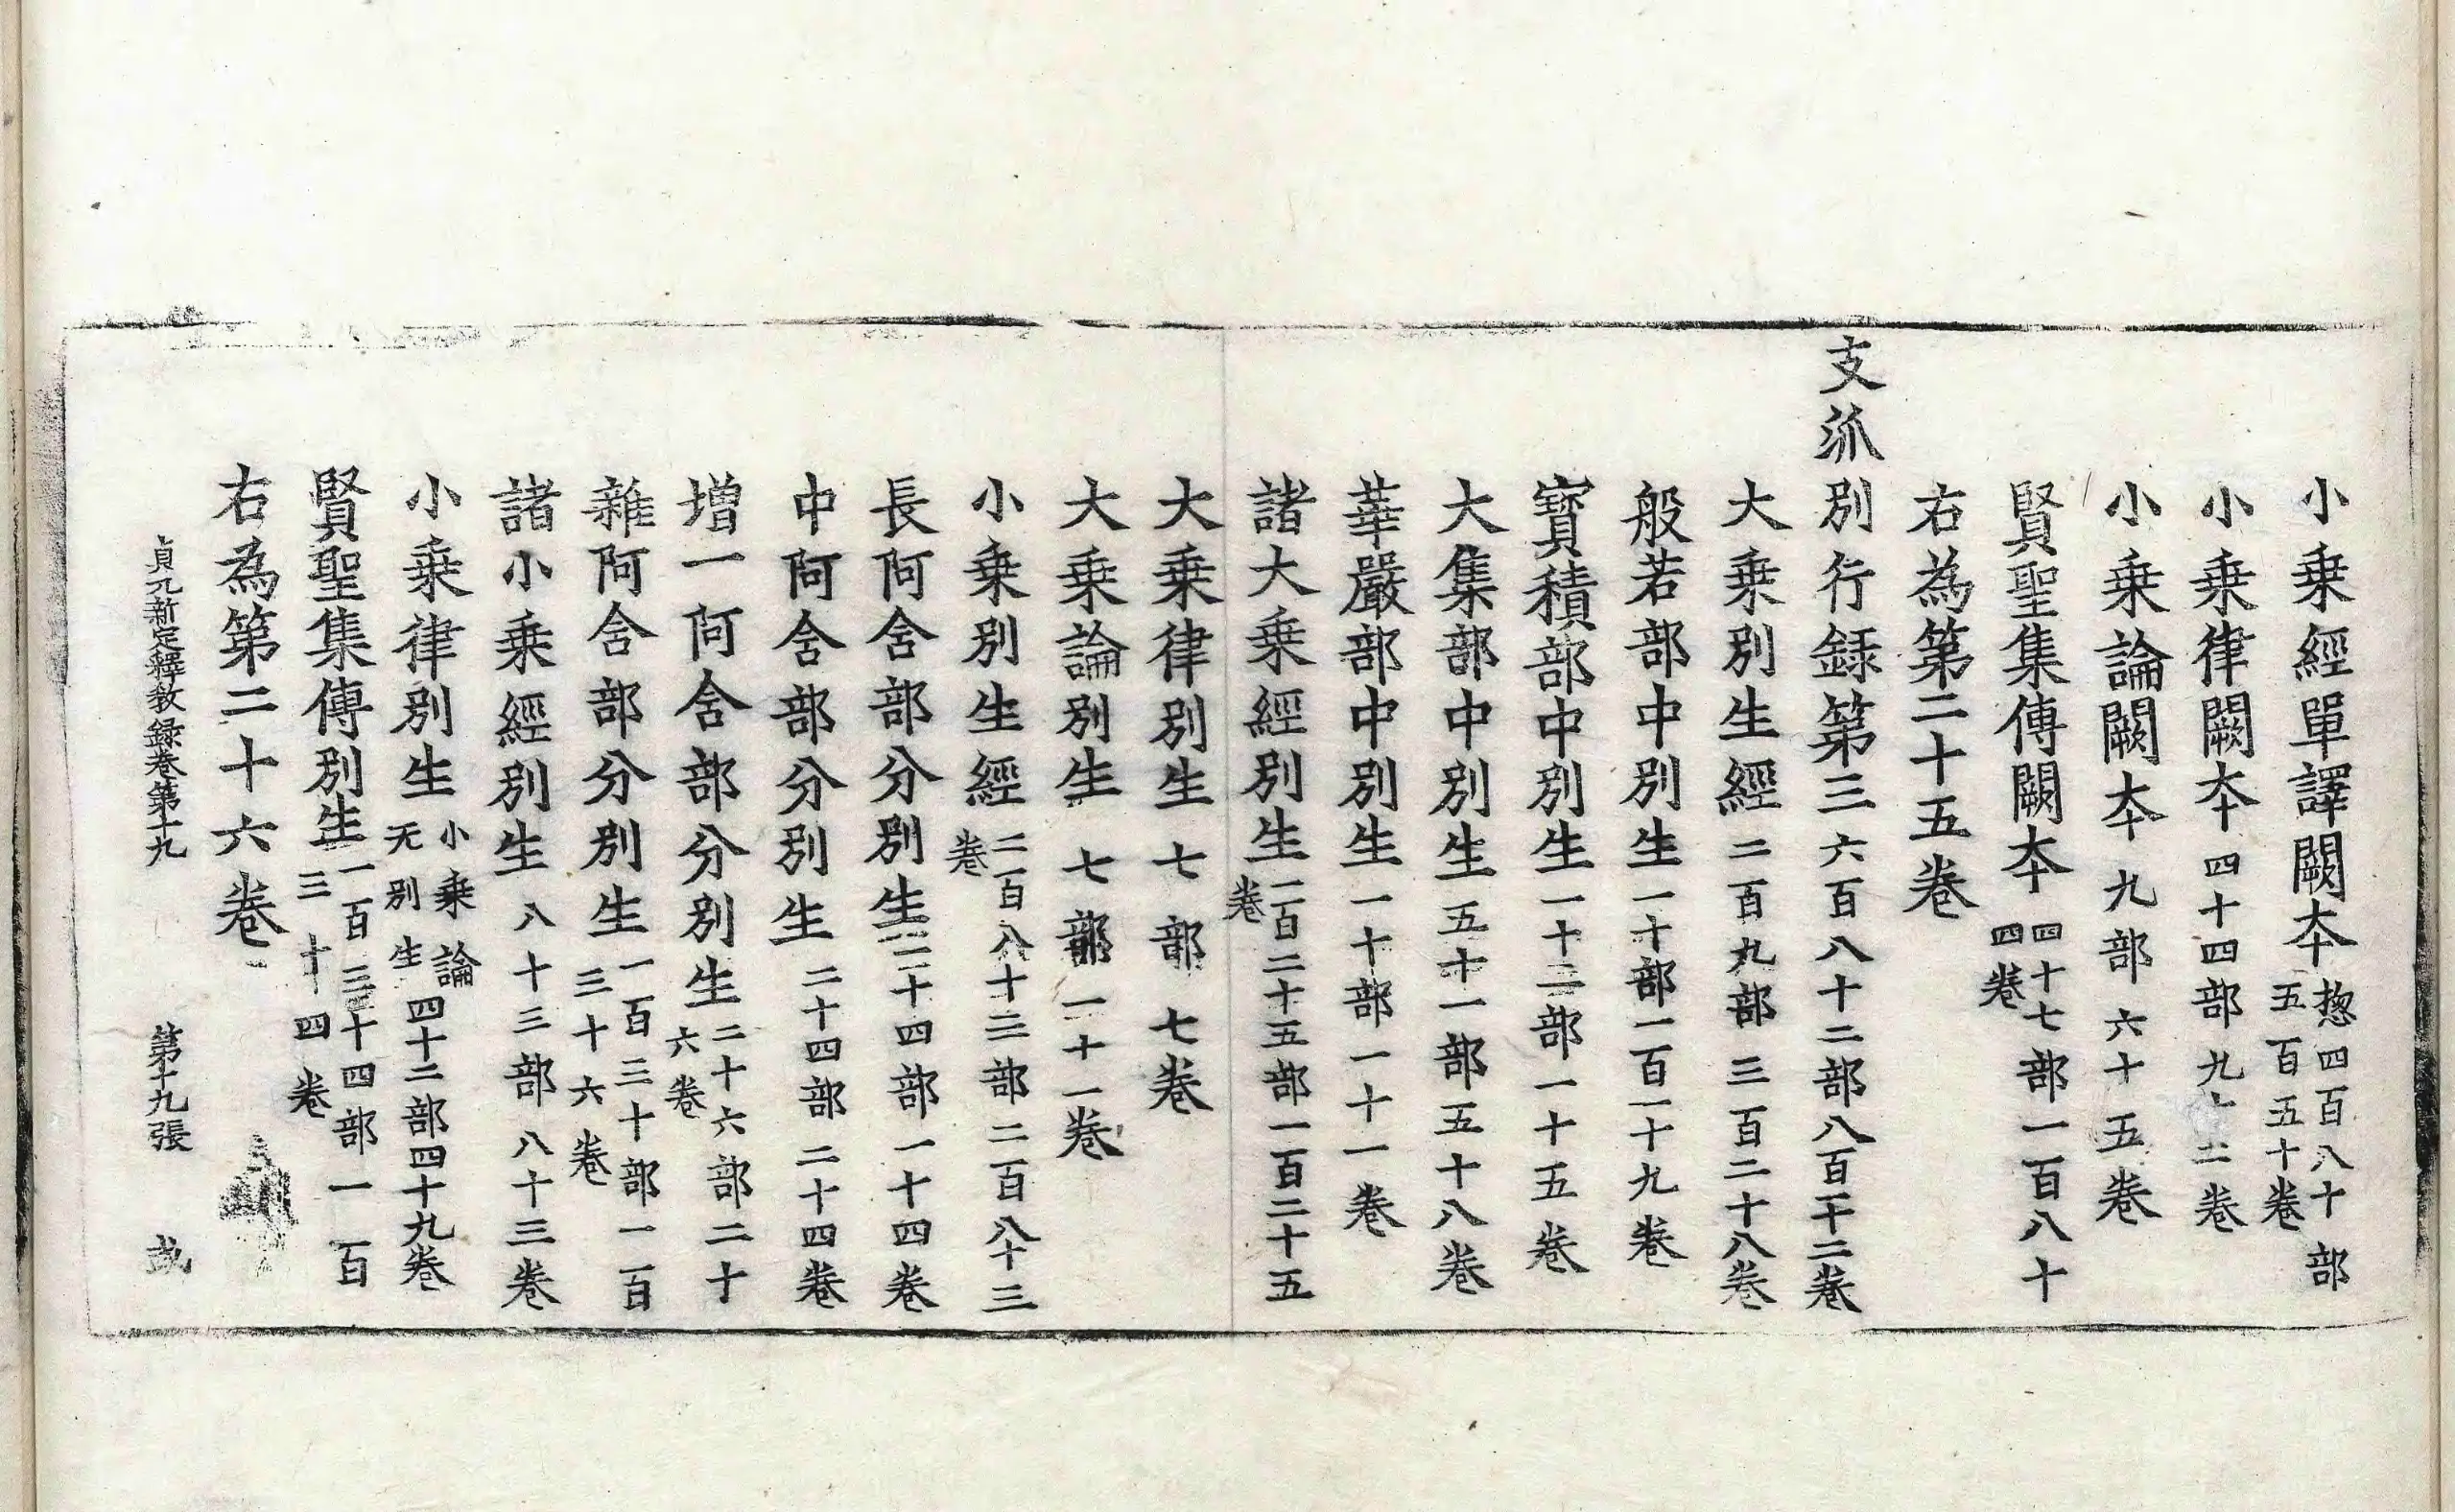 小乗經單譯闕夲揔四百八十部五百五十卷
小乗律闕夲四十四部九十二卷
小乗論闕夲九部六十五卷
賢聖集傳闕夲四十七部一百八十四卷
右為第二十五卷
支泒別行録第三六百八十二部八百一十二卷
大乗別生經二百九部三百二十八卷
般若部中別生一十部一百一十九卷
寳積部中別生一十二部一十五卷
大集部中別生五十一部五十八卷
華嚴部中別生一十部一十一卷
諸大乗經別生一百二十五部一百二十五卷
大乗律別生七部七卷
大乗論別生七部一十一卷
小乗別生經二百八十三部二百八十三卷
長阿含部分別生一十四部一十四卷
中阿含部分別生二十四部二十四卷
増一阿含部分別生二十六部二十六卷
雜阿含部分別生一百三十部一百三十六卷
諸小乗經別生八十三部八十三卷
小乗律別生小乗論无別生四十二部四十九卷
賢聖集傳別生一百三十四部一百三十四卷
右為第二十六卷
貞元新定釋教録卷第十九 第十九張